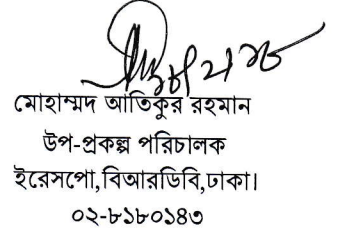 মোহাম্মদ আতিকুর রহমান
উপ-প্রকল্প পরিচালক
ইরেসপো,বিআরডিবি,ঢাকা।
০২-৮১৮০১৪৩